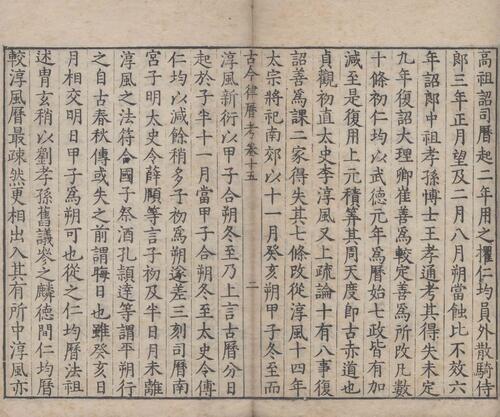 高祖詔司曆起二年用之擢仁均員外散騎侍
郎三年正月望及二月八月朔當蝕比不效六
年詔郎中祖孝孫博士王孝通考其得失未定
九年復詔大理卿崔善為較定善為所改凡數
十條初仁均以武德元年為曆始七政皆有加
減至是復用上元積筭其周天度即古赤道也
貞觀初直太史李淳風又上疏論十有八事復
詔善為課二家得失其七條改從淳風十四年
太宗將祀南郊以十一月癸亥朔甲子冬至而
古今律曆考卷十五 二
淳風新術以甲子合朔冬至乃上言古曆分日
起於子半十一月當甲子合朔冬至太史令傅
仁均以減餘稍多子初為朔遂差三刻司曆南
宮子明太史令薛頤等言子初及半日月未離
淳風之法符合國子祭酒孔穎達等謂平朔行
之自古春秋傳或失之前謂晦日也雖癸亥日
月相交明日甲子為朔可也從之仁均曆法祖
述冑玄稍以劉孝孫舊議參之麟德間仁均曆
較淳風曆最疎然更相出入其有所中淳風亦